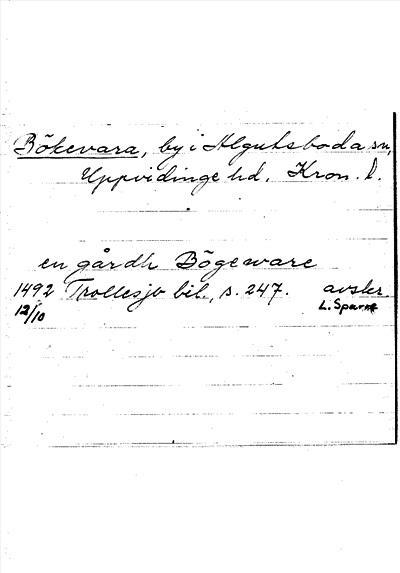 Bökevara, by i Algutsboda sn,
Uppvidinge hd. Kron. l.
en gårdh Bögeware
1492 Trollesjö bil., s. 247. avskr.
12/10 L. Sparre